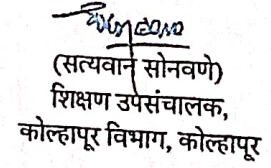 (सत्यवान सोनवणे)
शिक्षण उपसंचालक,
कोल्हापूर विभाग, कोल्हापूर